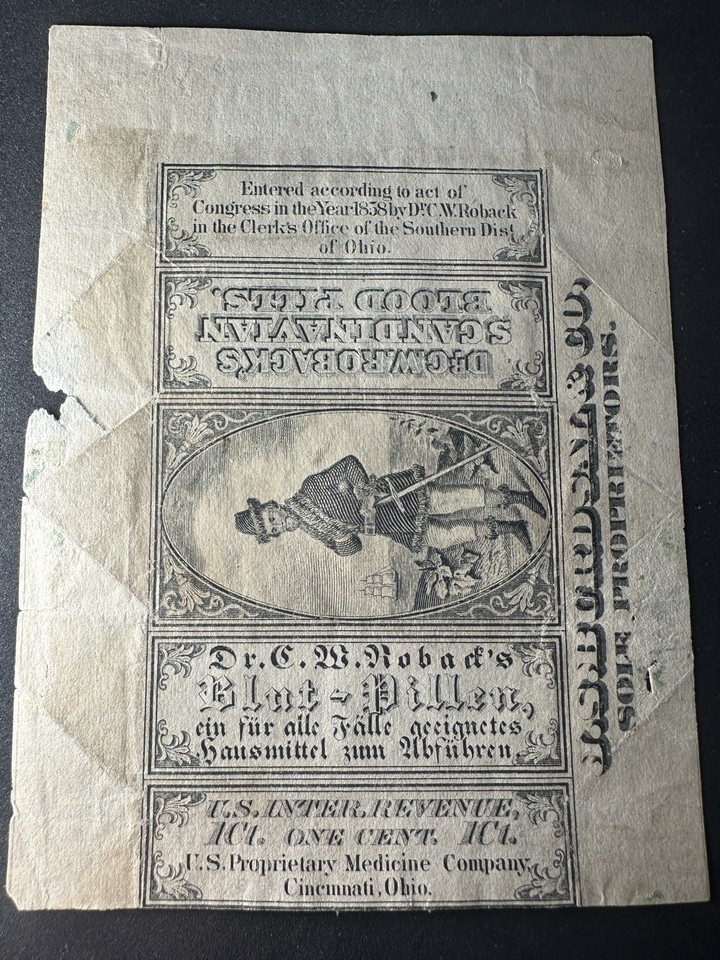 Entered according to act of
Congress in the Year 1858 by Dr. C. W. Roback
in the Clerk's Office of the Southern Dist.
of Ohio.
DR. C. W. ROBACK'S
SCANDINAVIAN
BLOOD PILLS.
Dr. C. W. Roback's
Blut-Pillen,
ein für alle Fälle geeignetes
Hausmittel zum Abführen
U.S. INTER. REVENUE,
1Ct. ONE CENT. 1Ct.
U.S. Proprietary Medicine Company,
Cincinnati, Ohio.
SOLE PROPRIETORS.